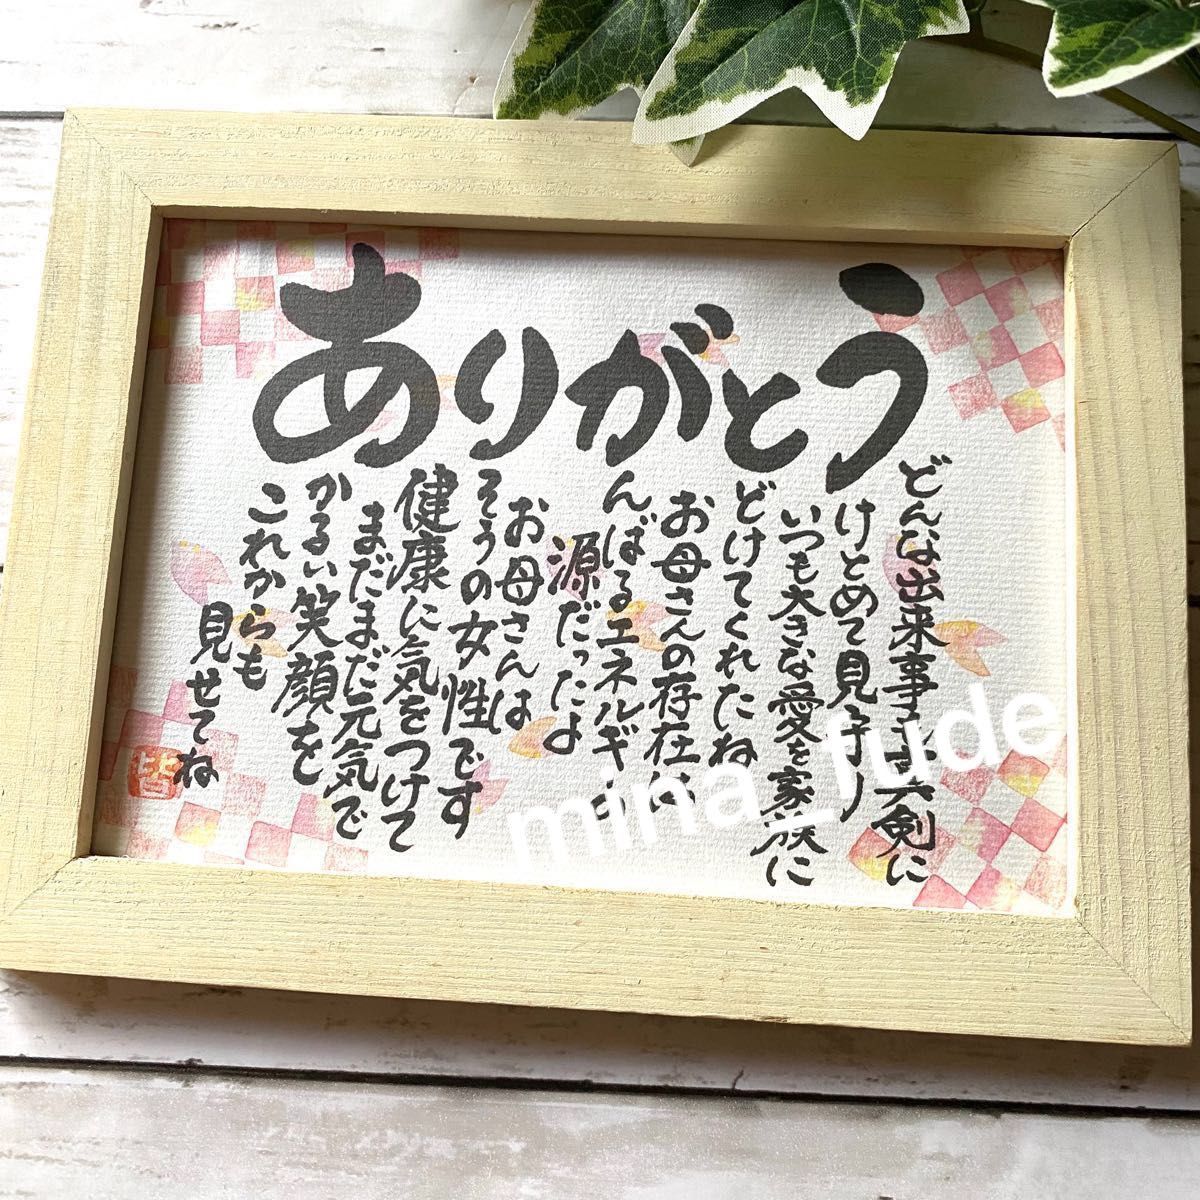 ありがとう
どんな出来事も真剣に
けとめて見守り
いつも大きな愛を家族に
どけてくれたね
お母さんの存在は
んばるエネルギー
源だったよ
お母さんは
そうの女性です
健康に気をつけて
まだまだ元気で
かるい笑顔を
これからも
見せてね
皆
mina_fude